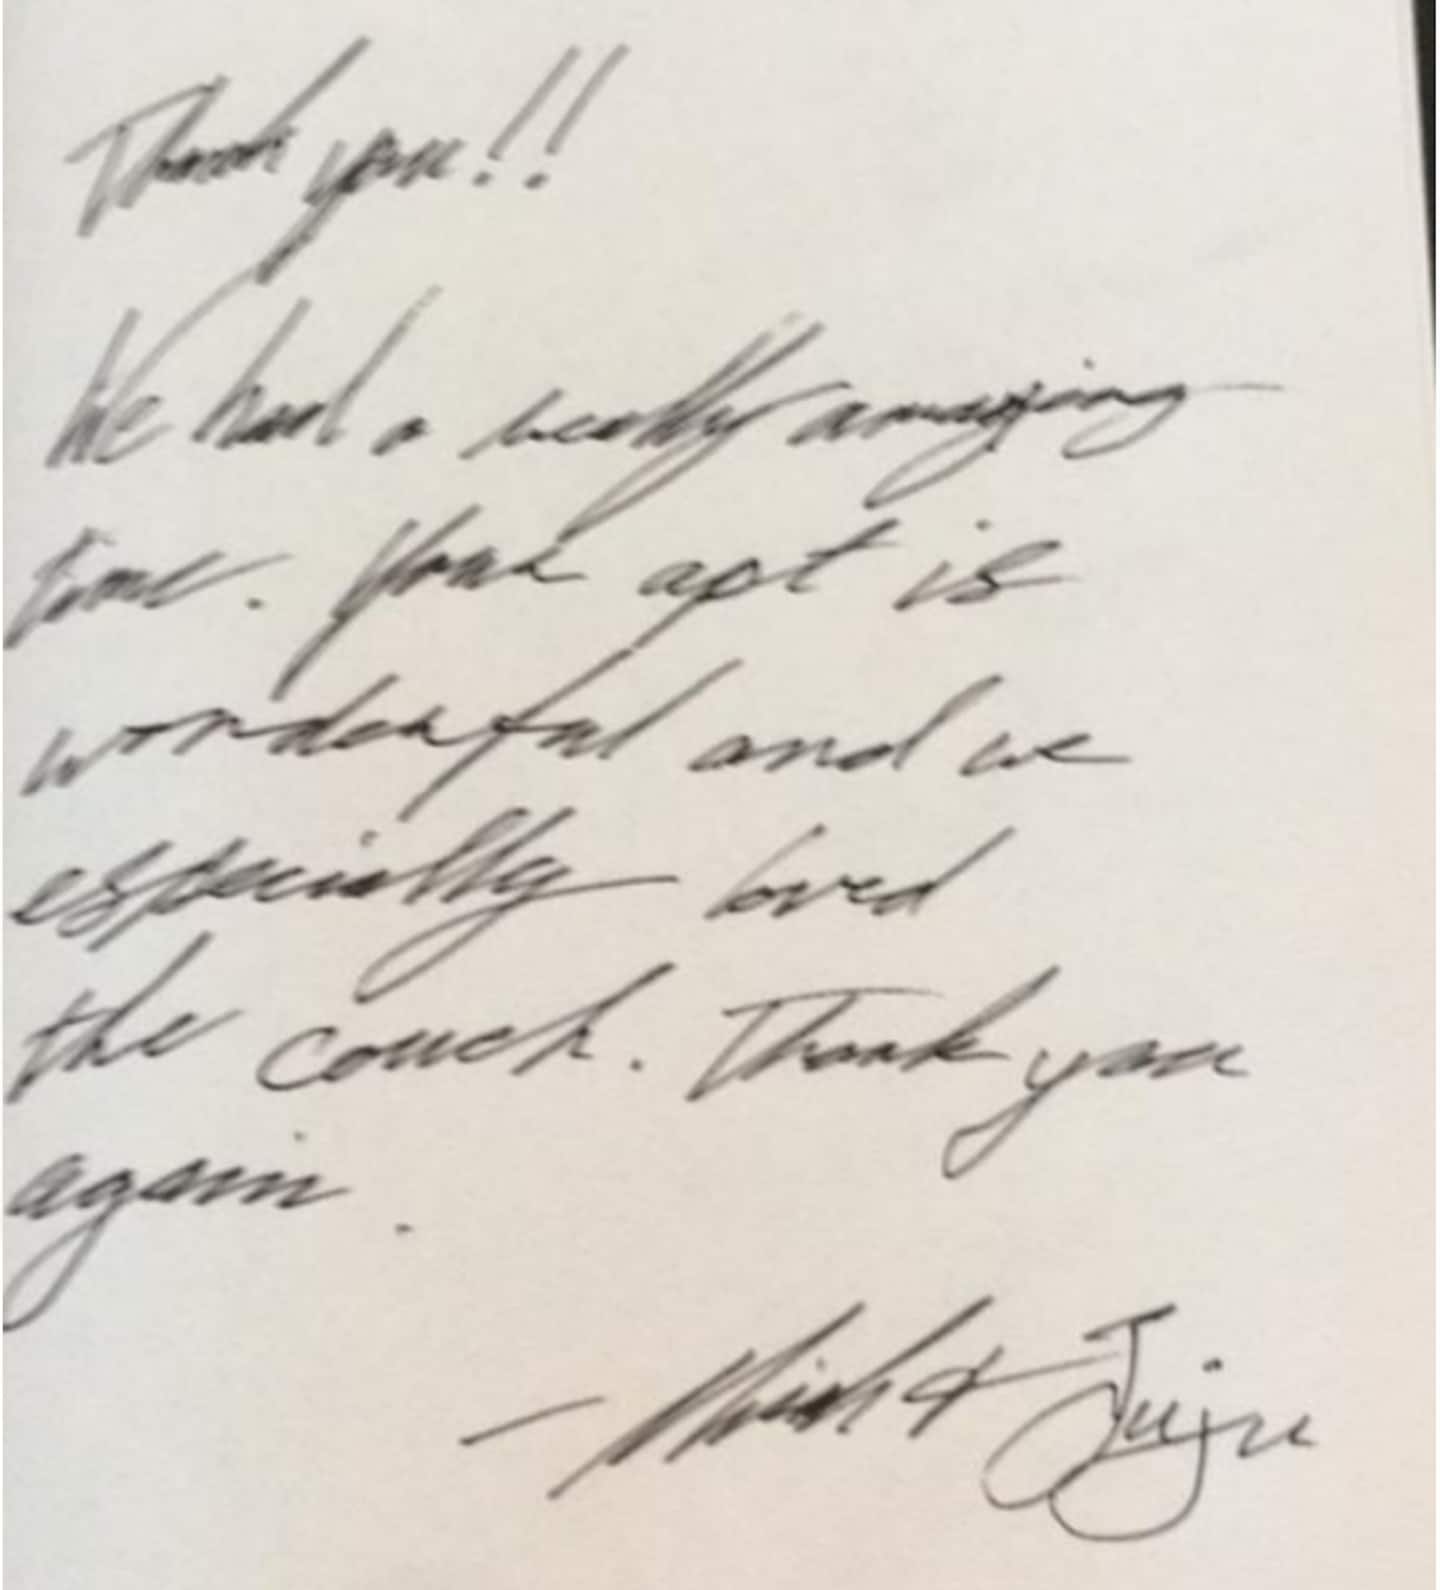 Thank you!!
We had a really amazing
time. Your apt is
wonderful and we
especially loved
the couch. Thank you
again.
- & Juju